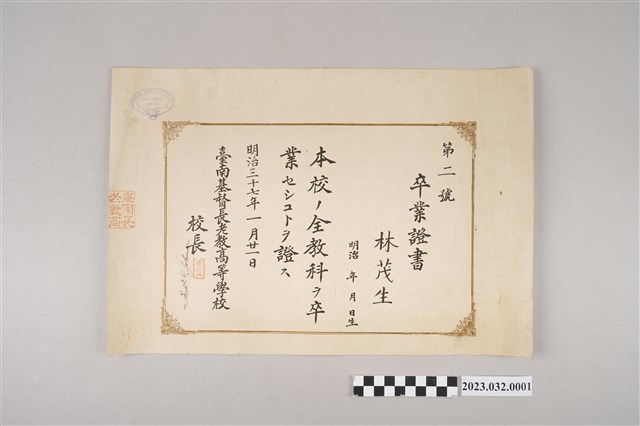 第二號
卒業證書
林茂生
明治 年 月 日生
本校ノ全教科ヲ卒
業セシコトヲ證ス
明治三十七年一月廿一日
臺南基督長老教高等學校
校長
2023.032.0001